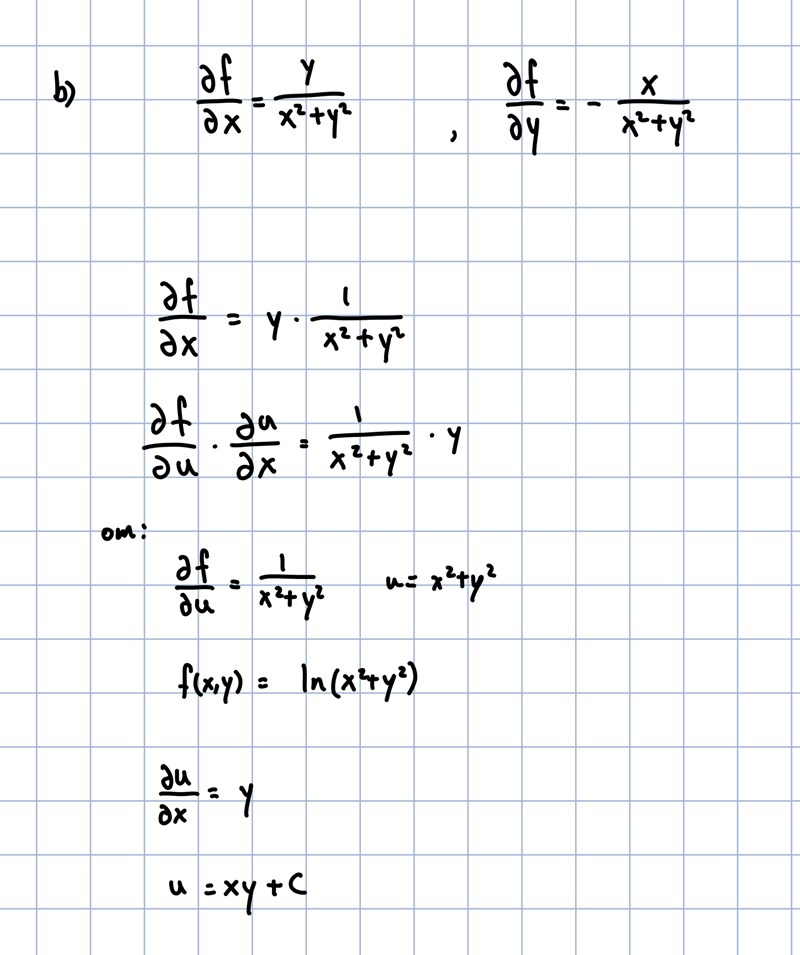 b) ∂f/∂x = y/(x²+y²) , ∂f/∂y = - x/(x²+y²)
∂f/∂x = y · 1/(x²+y²)
∂f/∂u · ∂u/∂x = 1/(x²+y²) · y
om:
∂f/∂u = 1/(x²+y²) u = x²+y²
f(x,y) = ln(x²+y²)
∂u/∂x = y
u = xy + C